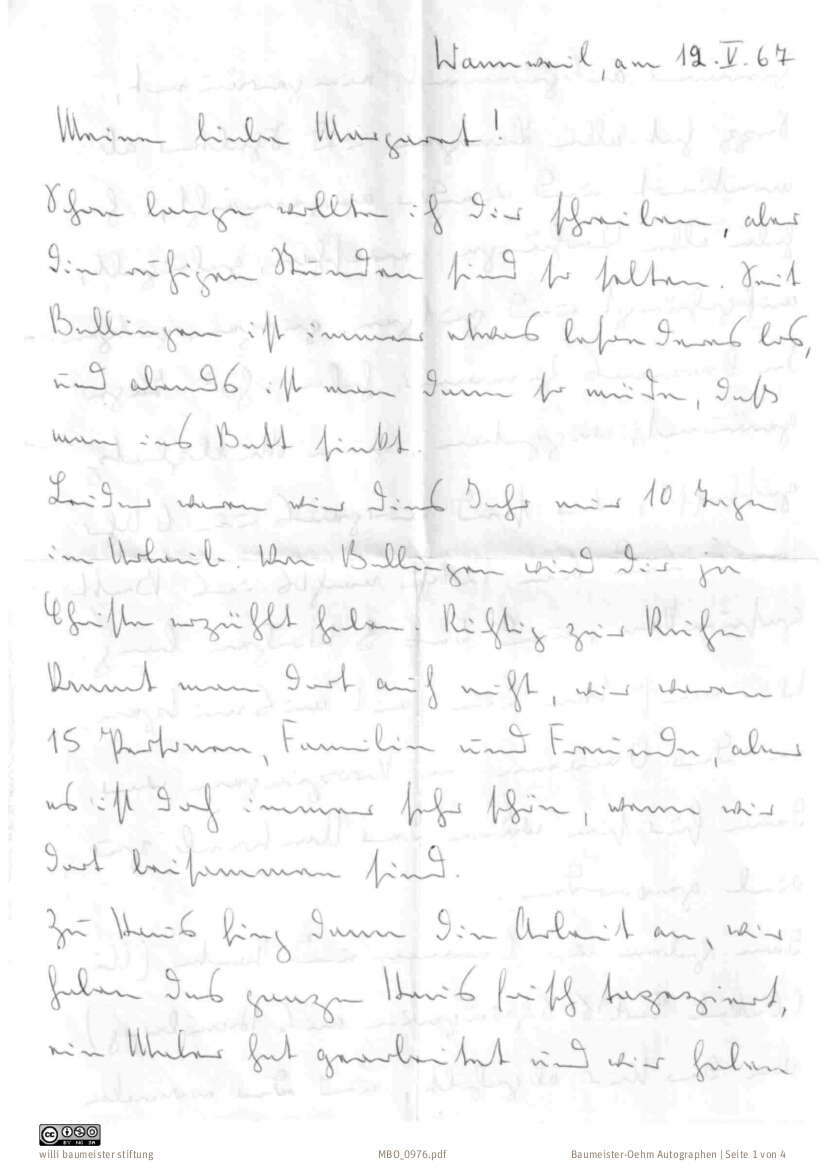 Wannweil, am 12.V.67
Meine liebe Margaret!
Schon lange wollte ich Dir schreiben, aber
die ruhigen Stunden sind so selten. Mit
Bullingen ist immer etwas besonderes los,
und abends ist man dann so müde, daß
man ins Bett sinkt.
Leider waren wir dies Jahr nur 10 Tage
im Urlaub. Von Bullingen wird Dir ja
Christa erzählt haben. Richtig zur Ruhe
kommt man dort auch nicht, wir waren
15 Personen, Familie und Freunde, aber
es ist doch immer sehr schön, wenn wir
dort beisammen sind.
Zu Haus fing dann die Arbeit an, wir
haben das ganze Haus frisch tapeziert,
ein Maler hat gearbeitet und wir haben
willi baumeister stiftung
MBO_0976.pdf
Baumeister-Oehm Autographen | Seite 1 von 4